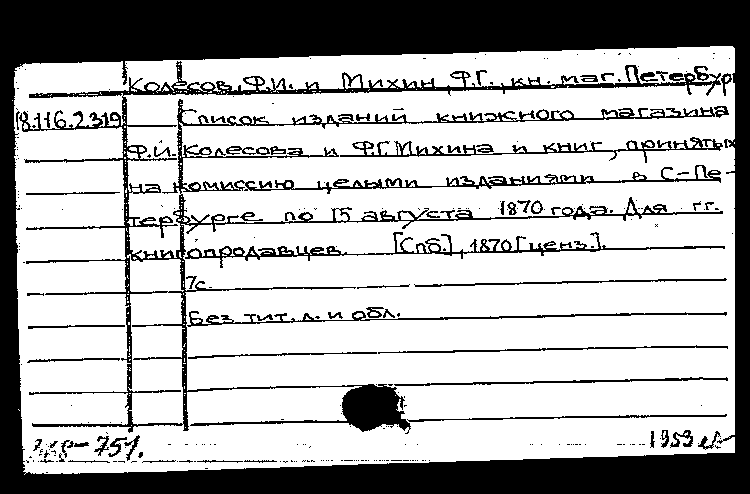 Колесов, Ф.И. и Михин, Ф.Г., кн. маг. Петербург
18.116.2.319 Список изданий книжного магазина
Ф.И. Колесова и Ф.Г. Михина и книг, принятых
на комиссию целыми изданиями в С-Пе-
тербурге по 15 августа 1870 года. Для гг.
книгопродавцев. [Спб.], 1870 [ценз.].
7с.
Без тит. л. и обл.
751.
1959